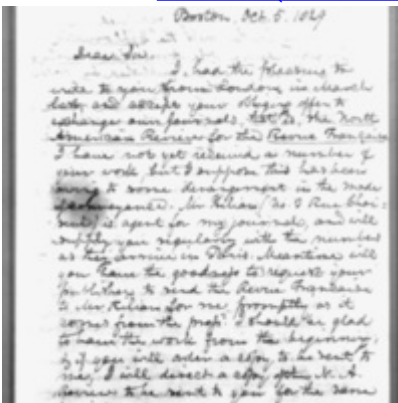 Boston, Oct. 5. 1829
Dear Sir,
I had the pleasure to
write to you from London in March
last, and accept your obliging offer to
exchange our journals, that is, the North
American Review for the Revue Française
I have not yet received a number of
your work, but I suppose this has been
owing to some derangement in the mode
of conveyance. Mr Kilian (No. 1 Rue Choi-
seul) is agent for my journal, and will
supply you regularly with the numbers
as they arrive in Paris. Meantime will
you have the goodness to request your
publisher to send the Revue Française
to Mr Kilian for me promptly as it
comes from the press. I should be glad
to have the work from the beginning,
& if you will order a copy to be sent to
me, I will direct a copy of the N. A.
Review to be sent to you for the same